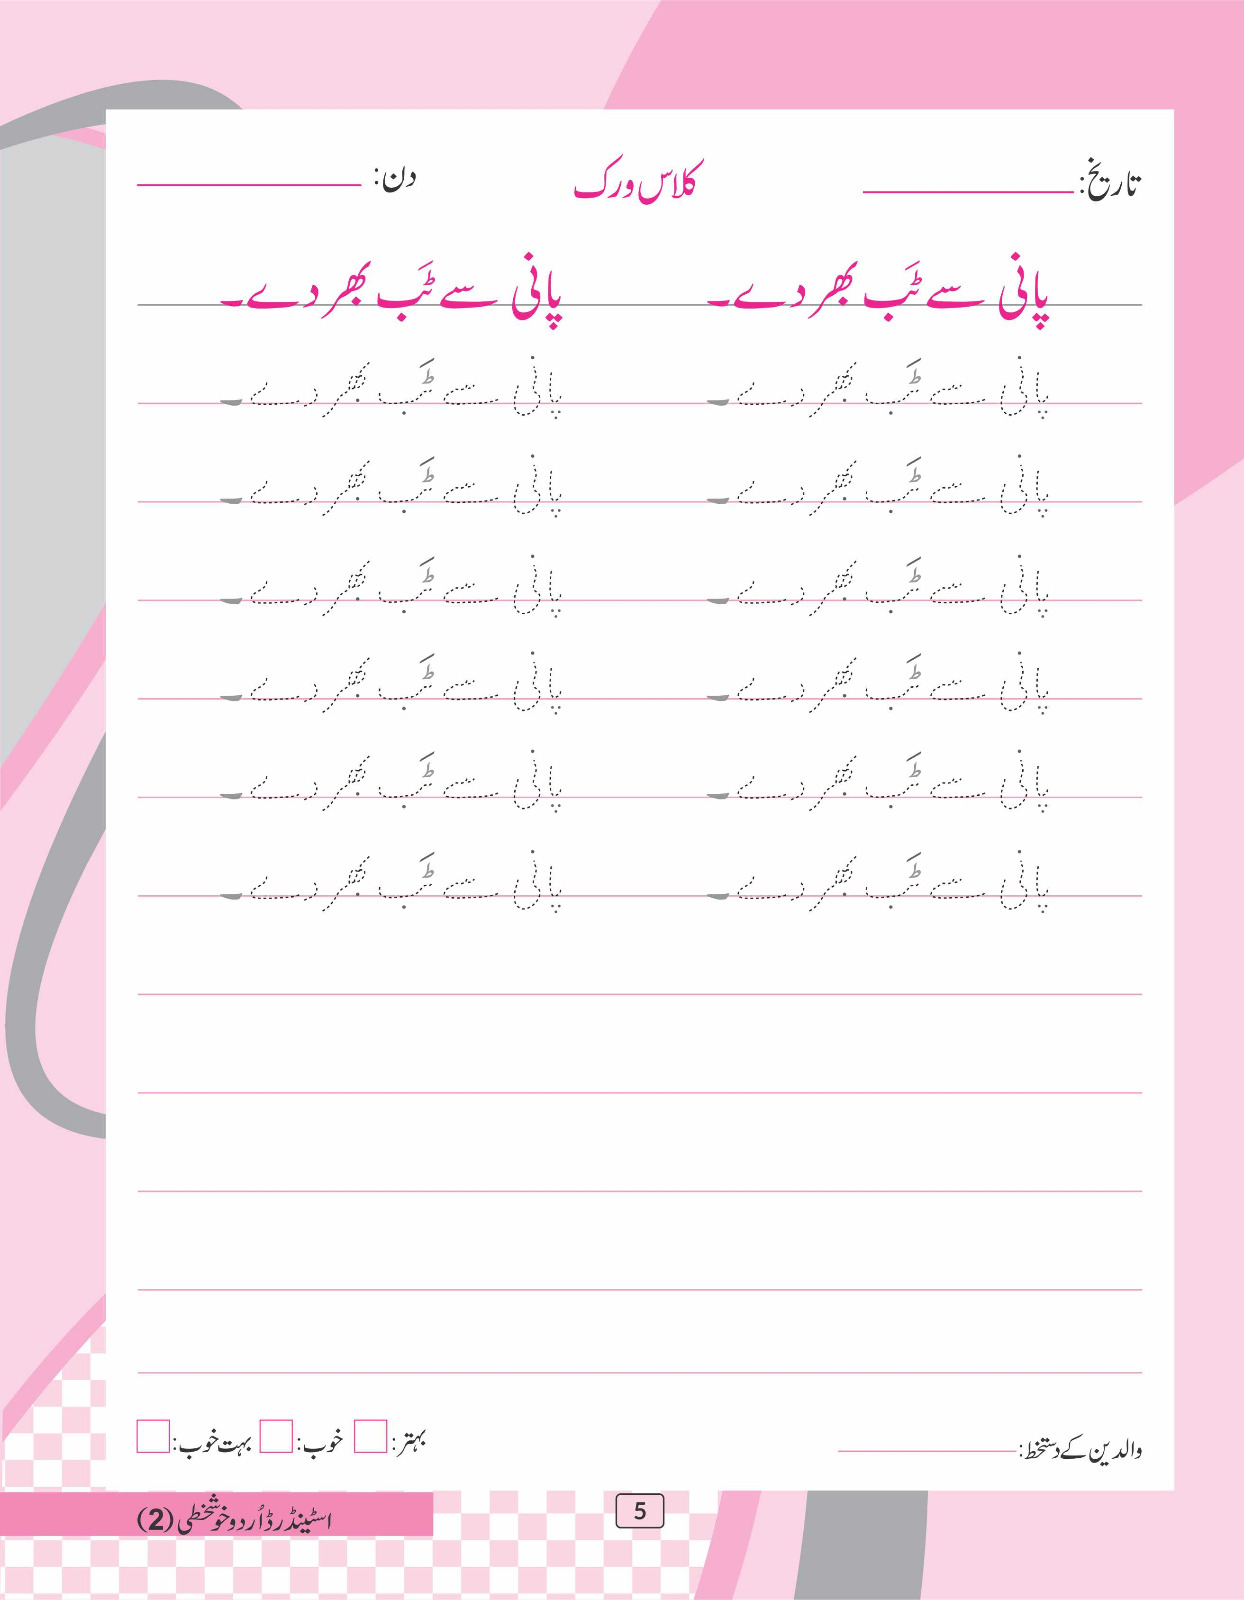 تاریخ: کلاس ورک دن:
پانی سے ٹَب بھر دے۔ پانی سے ٹَب بھر دے۔
پانی سے ٹَب بھر دے۔ پانی سے ٹَب بھر دے۔
پانی سے ٹَب بھر دے۔ پانی سے ٹَب بھر دے۔
پانی سے ٹَب بھر دے۔ پانی سے ٹَب بھر دے۔
پانی سے ٹَب بھر دے۔ پانی سے ٹَب بھر دے۔
پانی سے ٹَب بھر دے۔ پانی سے ٹَب بھر دے۔
پانی سے ٹَب بھر دے۔ پانی سے ٹَب بھر دے۔
والدین کے دستخط: بہتر: خوب: بہت خوب:
5
اسٹینڈرڈ اُردو خوشخطی (2)